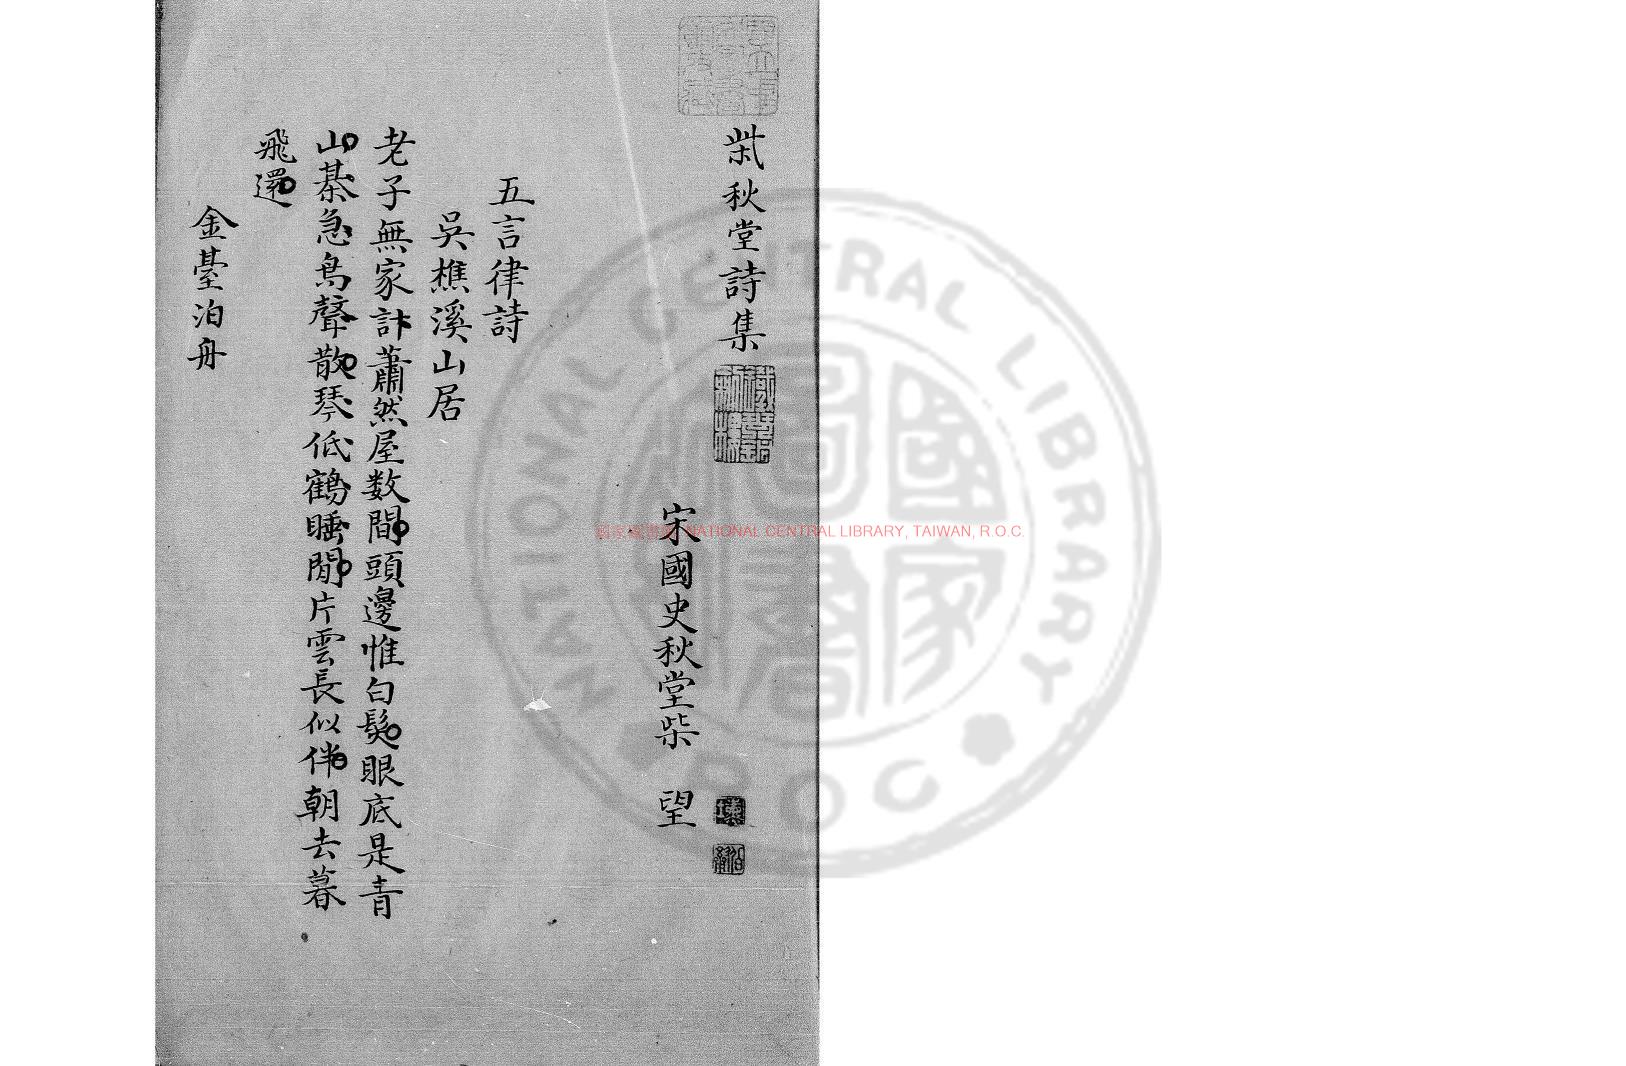 柴秋堂詩集
宋國史秋堂柴　望
五言律詩
吳樵溪山居
老子無家計蕭然屋数間頭邊惟白髮眼底是青
山棊急鳥聲散琴低鶴睡閒片雲長似伴朝去暮
飛還
金臺泊舟
國家圖書館 NATIONAL CENTRAL LIBRARY, TAIWAN, R.O.C.
NATIONAL CENTRAL LIBRARY
ROC
國家圖書館